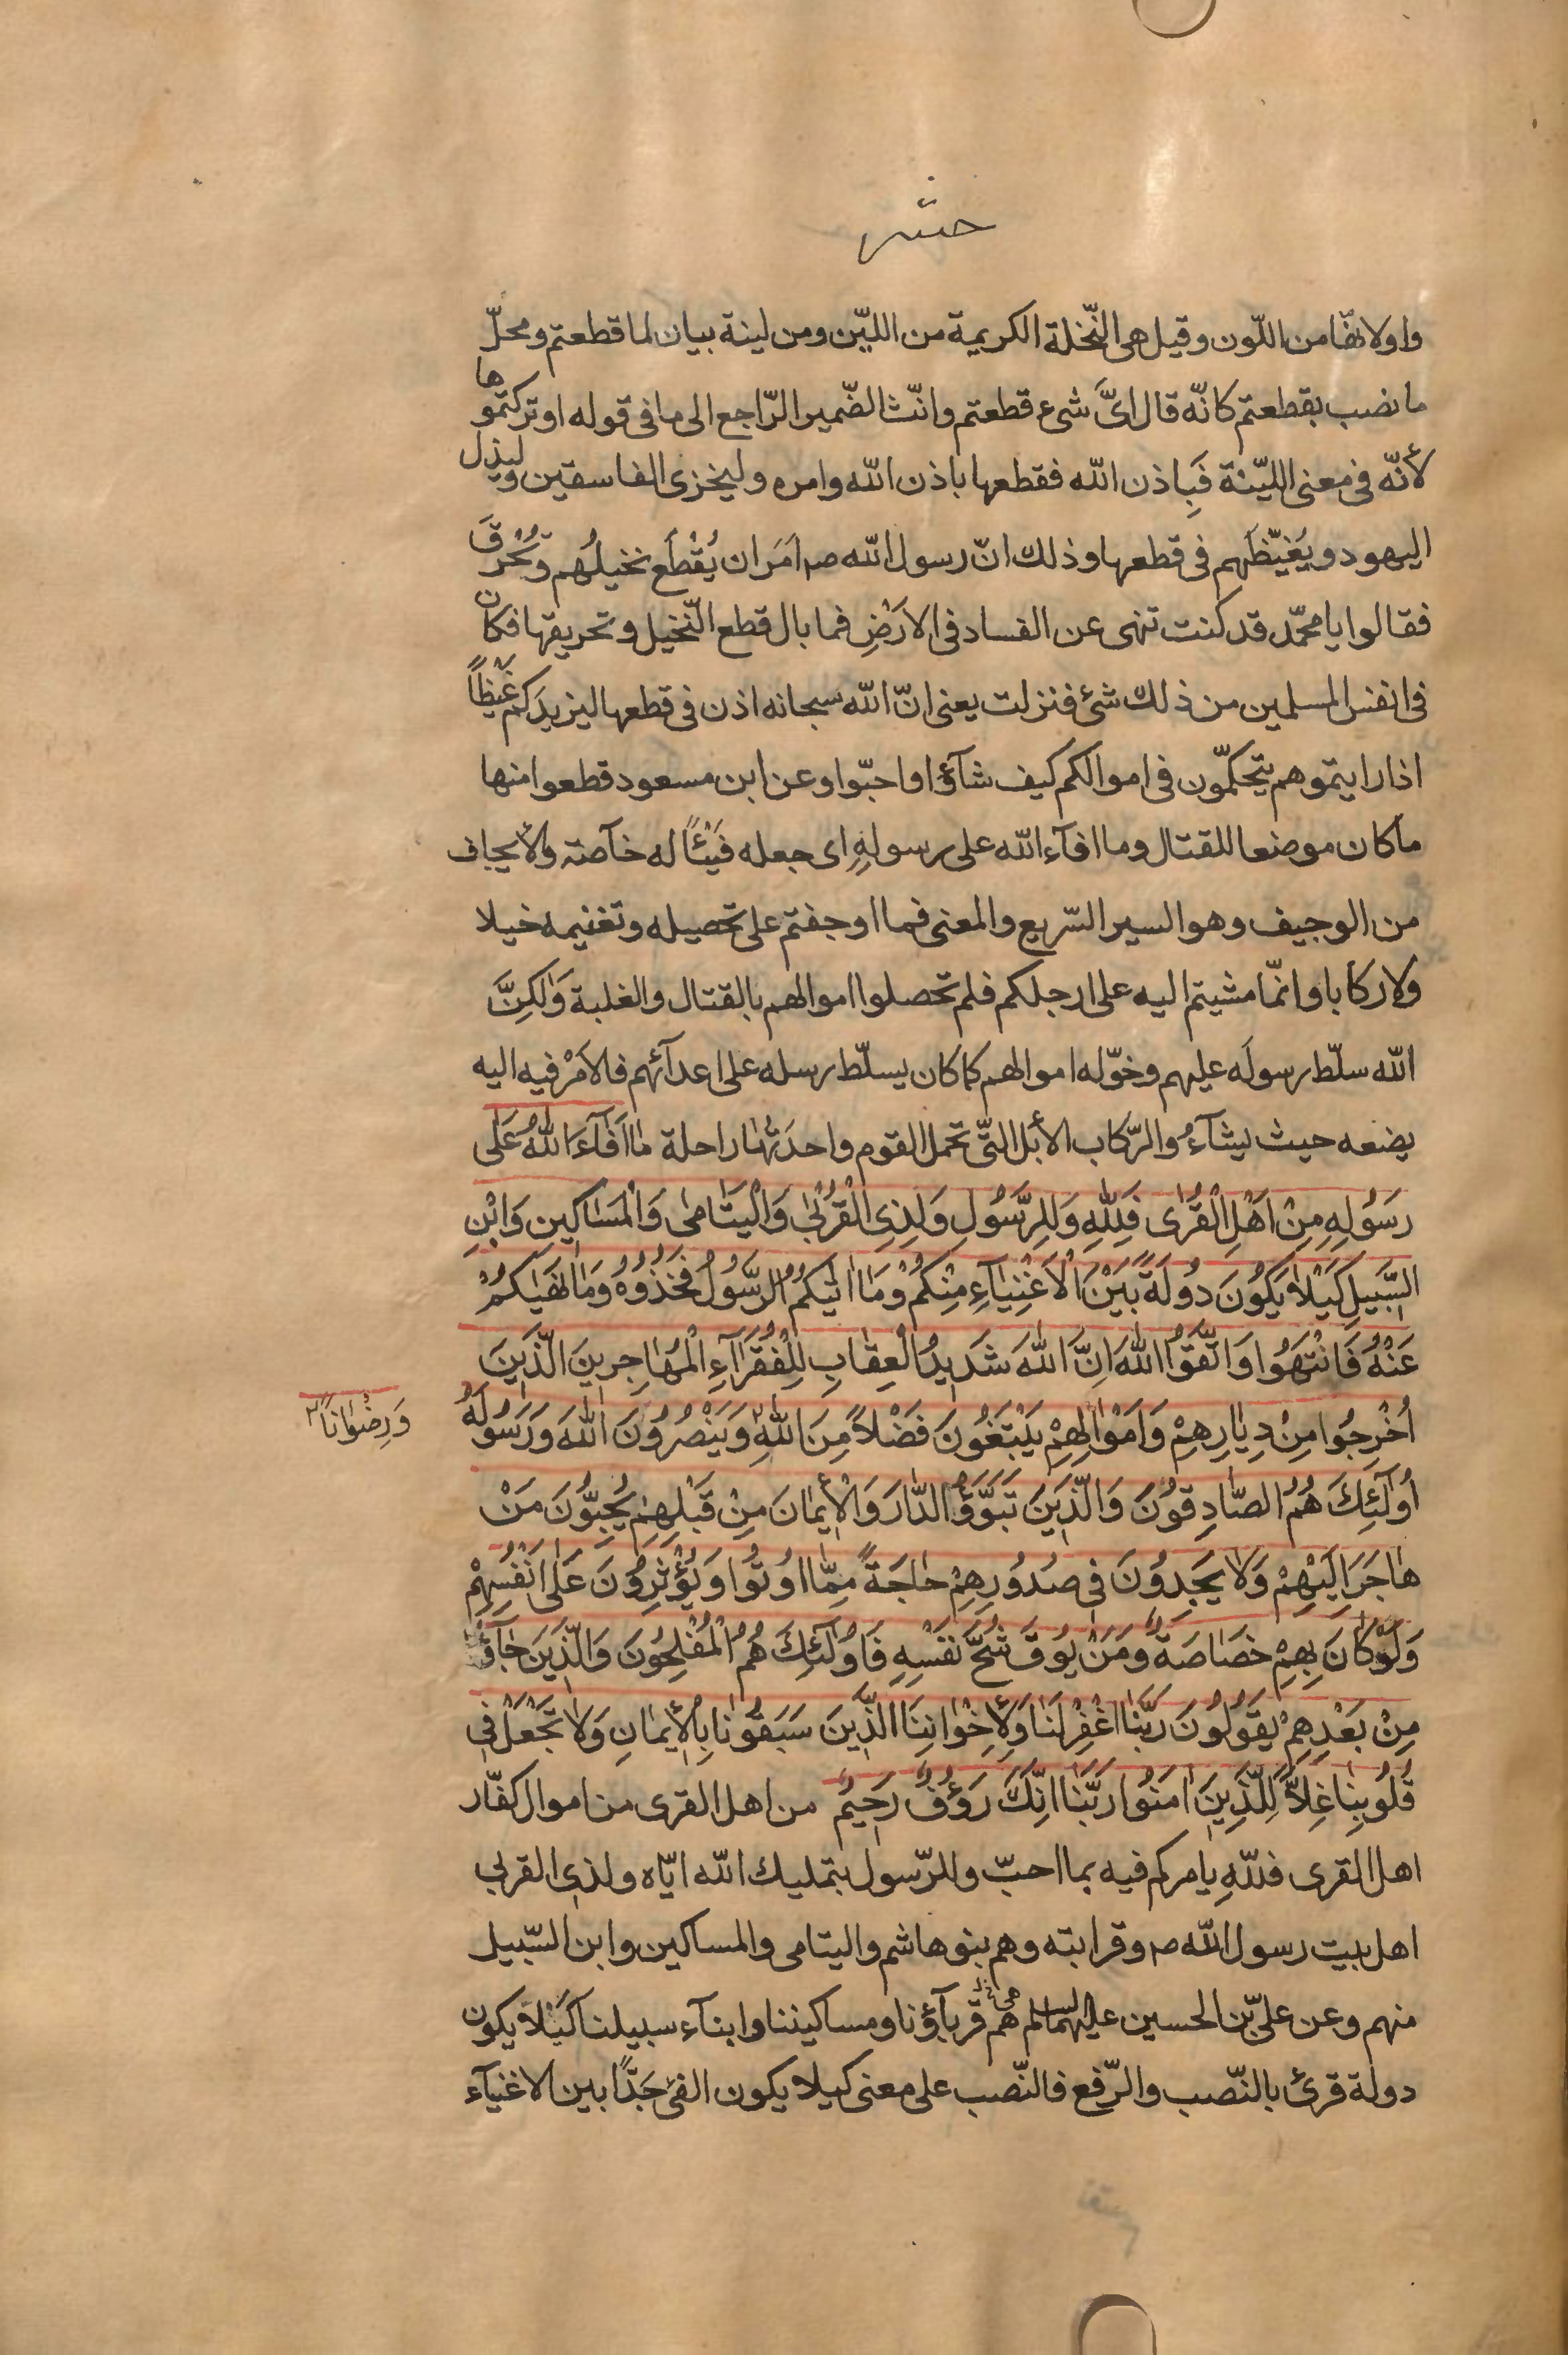 حشر
واو لانّها من اللّون وقيل هى النّخلة الكريمة من الليّن ومن لينة بيان لما قطعتم ومحلّ
ما نصب بقطعتم كانّه قال اىَّ شىء قطعتم وانّث الضّمير الرّاجع الى ما فى قوله او تركتموها
لأنّه فى معنى الليّنة فَبِاذن الله فقطعها باذن الله وامره وليخزى الفاسقين وليذل
اليهود ويغيّظَهم فى قطعها وذلك انّ رسول الله ص اَمَر ان يُقْطَع نخيلُهم وتُحْرَقَ
فقالوا يا محمّد قد كنت تنهى عن الفساد فى الاَرْضِ فما بال قطع النّخيل وتحريقها فكان
فى انفس المسلمين من ذلك شئ فنزلت يعنى انّ الله سبحانه اذن فى قطعها ليزيدَكم غَيْظاً
اذا رايتموهم يتحكمّون فى اموالكم كيف شآؤا واحبّوا وعن ابن مسعود قطعوا منها
ما كان موضعا للقتال وما افآء الله على رسولهِ اى جعله فَيْئاً له خآصة ولأيجاف
من الوجيف وهو السير السّريع والمعنى فما اوجفتم على تحصيله وتغنيمه خيلا
ولا ركابا وانمّا مشيتم اليه على ارجلكم فلم تحصلوا اموالهم بالقتال والغلبة وَلكِنَّ
الله سلّط رسولَه عليهم وخوّله اموالهم كما كان يسلّط رسله على اعدآئهم فالاَمْر فيه اليه
يضعه حيث يشآءُ والرّكاب الأبل التّى تحمل القوم واحدَتُها راحلة مٰا اَفٰآءَ اللّٰهُ عَلٰى
رَسُولِهِ مِنْ اَهْلِ الْقُرٰى فَلِلّٰهِ وَلِلرَّسُولِ وَلِذِى الْقُرْبٰى وَالْيَتٰامٰى وَالْمَسٰاكِينِ وَابْنِ
السَّبِيلِ كَيْلاٰ يَكُونَ دُولَةً بَيْنَ الْاَغْنِيٰآءِ مِنْكُمْ وَمٰا اٰتٰيكُمُ الرَّسُولُ فَخُذُوهُ وَمٰا نَهٰيٰكُمْ
عَنْهُ فَانْتَهُوا وَاتَّقُوا اللّٰهَ اِنَّ اللّٰهَ شَدِيدُ الْعِقٰابِ لِلْفُقَرٰآءِ الْمُهٰاجِرِينَ الَّذِينَ
اُخْرِجُوا مِنْ دِيٰارِهِمْ وَاَمْوٰالِهِمْ يَبْتَغُونَ فَضْلاً مِنَ اللّٰهِ ٢ وَيَنْصُرُونَ اللّٰهَ وَرَسُولَهُ
وَرِضْوٰاناً ٢
اُولٰٓئِكَ هُمُ الصّٰادِقُونَ وَالَّذِينَ تَبَوَّؤُا الدّٰارَ وَالْأِيمٰانَ مِنْ قَبْلِهِمْ يُحِبُّونَ مَنْ
هٰاجَرَ اِلَيْهِمْ وَلاٰ يَجِدُونَ فِى صُدُورِهِمْ حٰاجَةً مِمّٰا اُوتُوا وَيُؤْثِرُونَ عَلٰى اَنْفُسِهِمْ
وَلَوْ كٰانَ بِهِمْ خَصٰاصَةٌ وَمَنْ يُوقَ شُحَّ نَفْسِهِ فَاُولٰٓئِكَ هُمُ الْمُفْلِحُونَ وَالَّذِينَ جٰآؤُ
مِنْ بَعْدِهِمْ يَقُولُونَ رَبَّنَا اغْفِرْلَنٰا وَلِأِخْوٰانِنَا الَّذِينَ سَبَقُونٰا بِالْأِيمٰانِ وَلاٰ تَجْعَلْ فِى
قُلُوبِنٰا غِلاًّ لِلَّذِينَ اٰمَنُوا رَبَّنٰا اِنَّكَ رَؤُفٌ رَحِيمٌ من اهل القرى من اموال كفّار
اهل القرى فللّهِ يامركم فيه بما احبّ وللرّسول بتمليك الله ايّاه ولذى القربى
اهل بيت رسول الله ص وقرابته وهم بنو هاشم واليتامى والمساكين وابن السّبيل
منهم وعن علىّ بن الحسين عليهما السلم هم قربآؤنا ومساكيننا وابنآء سبيلنا كَيْلاَ يكون
دولة قرئ بالنّصب والرّفع فالنّصب على معنى كيلا يكون الفئ جَدّاً بين الاغنيآء